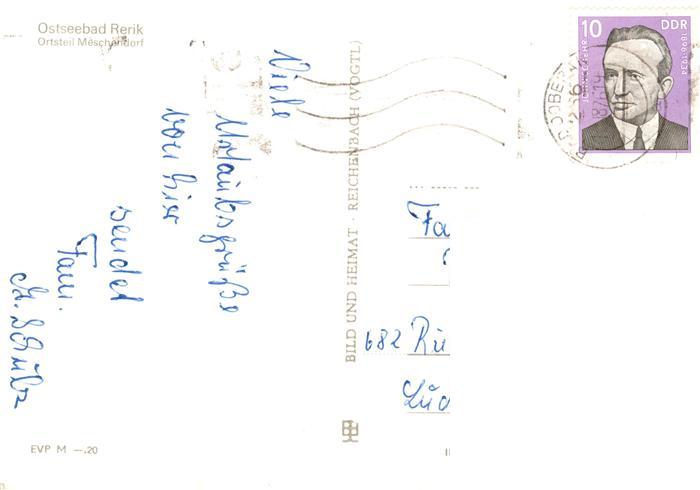 Ostseebad Rerik
Ortsteil Meschendorf
Viele
Urlaubsgrüße
von hier
sendet
Fam.
BILD UND HEIMAT · REICHENBACH (VOGTL)
10
DDR
1896-1934
Fa
682 Ru
EVP M —.20